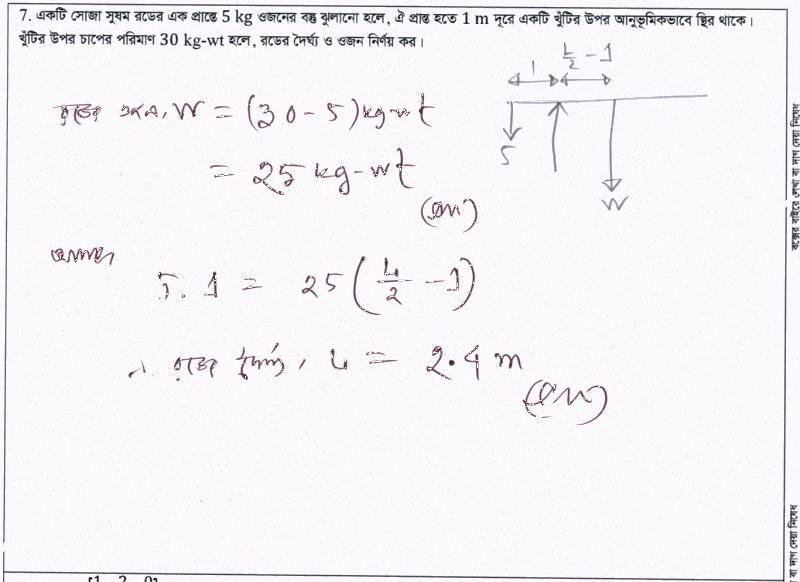 7. একটি সোজা সুষম রডের এক প্রান্তে 5 kg ওজনের বস্তু ঝুলানো হলে, ঐ প্রান্ত হতে 1 m দূরে একটি খুঁটির উপর আনুভূমিকভাবে স্থির থাকে।
খুঁটির উপর চাপের পরিমাণ 30 kg-wt হলে, রডের দৈর্ঘ্য ও ওজন নির্ণয় কর।
1 L/2 - 1
5 W
রডের ওজন, W = (30-5) kg-wt
= 25 kg-wt
(Ans)
5. 1 = 25 (L/2 - 1)
∴ রডের দৈর্ঘ্য, L = 2.4 m
(Ans)
বক্সের বাইরে লেখা বা দাগ দেয়া নিষেধ
বা দাগ দেয়া নিষেধ